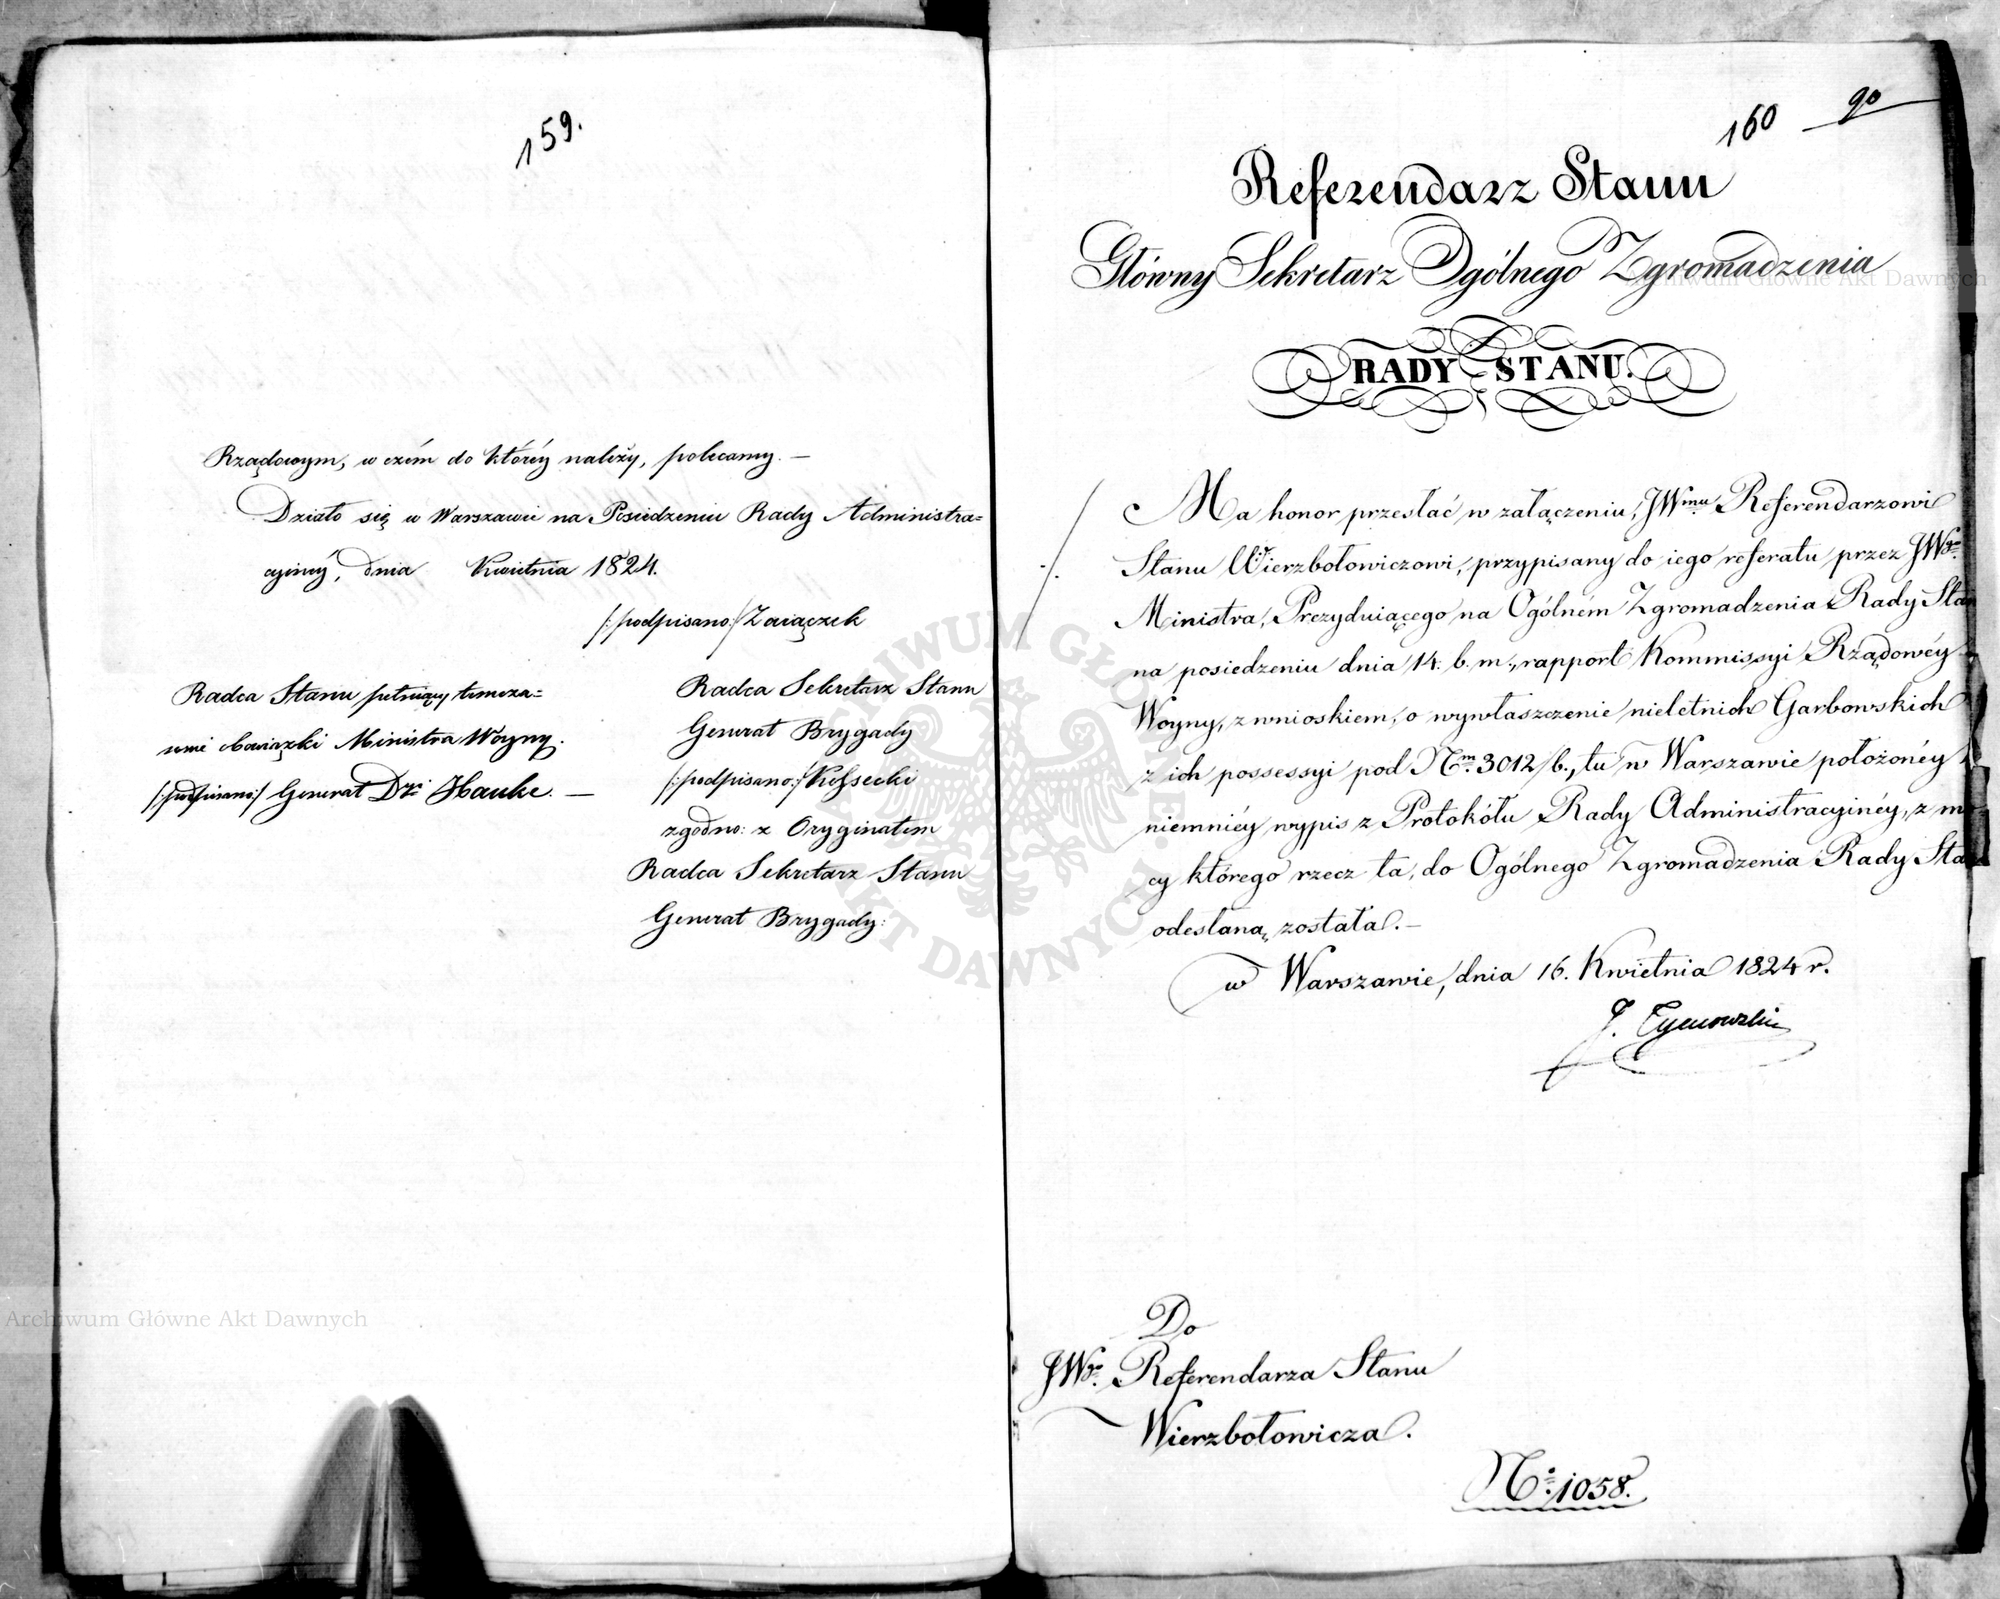 159.
Rządowym, w czém do któréy należy, polecamy. —
Działo się w Warszawie na Posiedzeniu Rady Administra=
cyinéy, dnia Kwietnia 1824.
/:podpisano:/ Zaiączek
Radca Stanu pełniący tymcza=
sowie obowiązki Ministra Woyny.
/:podpisano:/ Generał Dyi Hauke. —
Radca Sekretarz Stanu
Generał Brygady
/:podpisano:/ Kossecki
zgodno: z Oryginałem
Radca Sekretarz Stanu
Generał Brygady:
160 90
Referendarz Stanu
Główny Sekretarz Ogólnego Zgromadzenia
RADY STANU.
Ma honor przesłać w załączeniu, JWmu Referendarzowi
Stanu Wierzbołowiczowi, przypisany do iego referatu przez JWgo
Ministra, Prezyduiącego na Ogólném Zgromadzenia Rady Sta
na posiedzeniu dnia 14. b. m., rapport Kommissyi Rządowéy
Woyny, z wnioskiem, o wywłaszczenie nieletnich Garbowskich
z ich possessyi pod Nrem 3012/b., tu w Warszawie położonéy,
niemniéy wypis z Protokółu Rady Administracyinéy, z mo
cy którego rzecz ta, do Ogólnego Zgromadzenia Rady Sta
odesłaną została. —
w Warszawie, dnia 16. Kwietnia 1824 r.
J. Tymowski
Do
JWgo Referendarza Stanu
Wierzbołowicza.
No. 1058.
Archiwum Główne Akt Dawnych
Archiwum Główne Akt Dawnych
ARCHIWUM GŁÓWNE AKT DAWNYCH